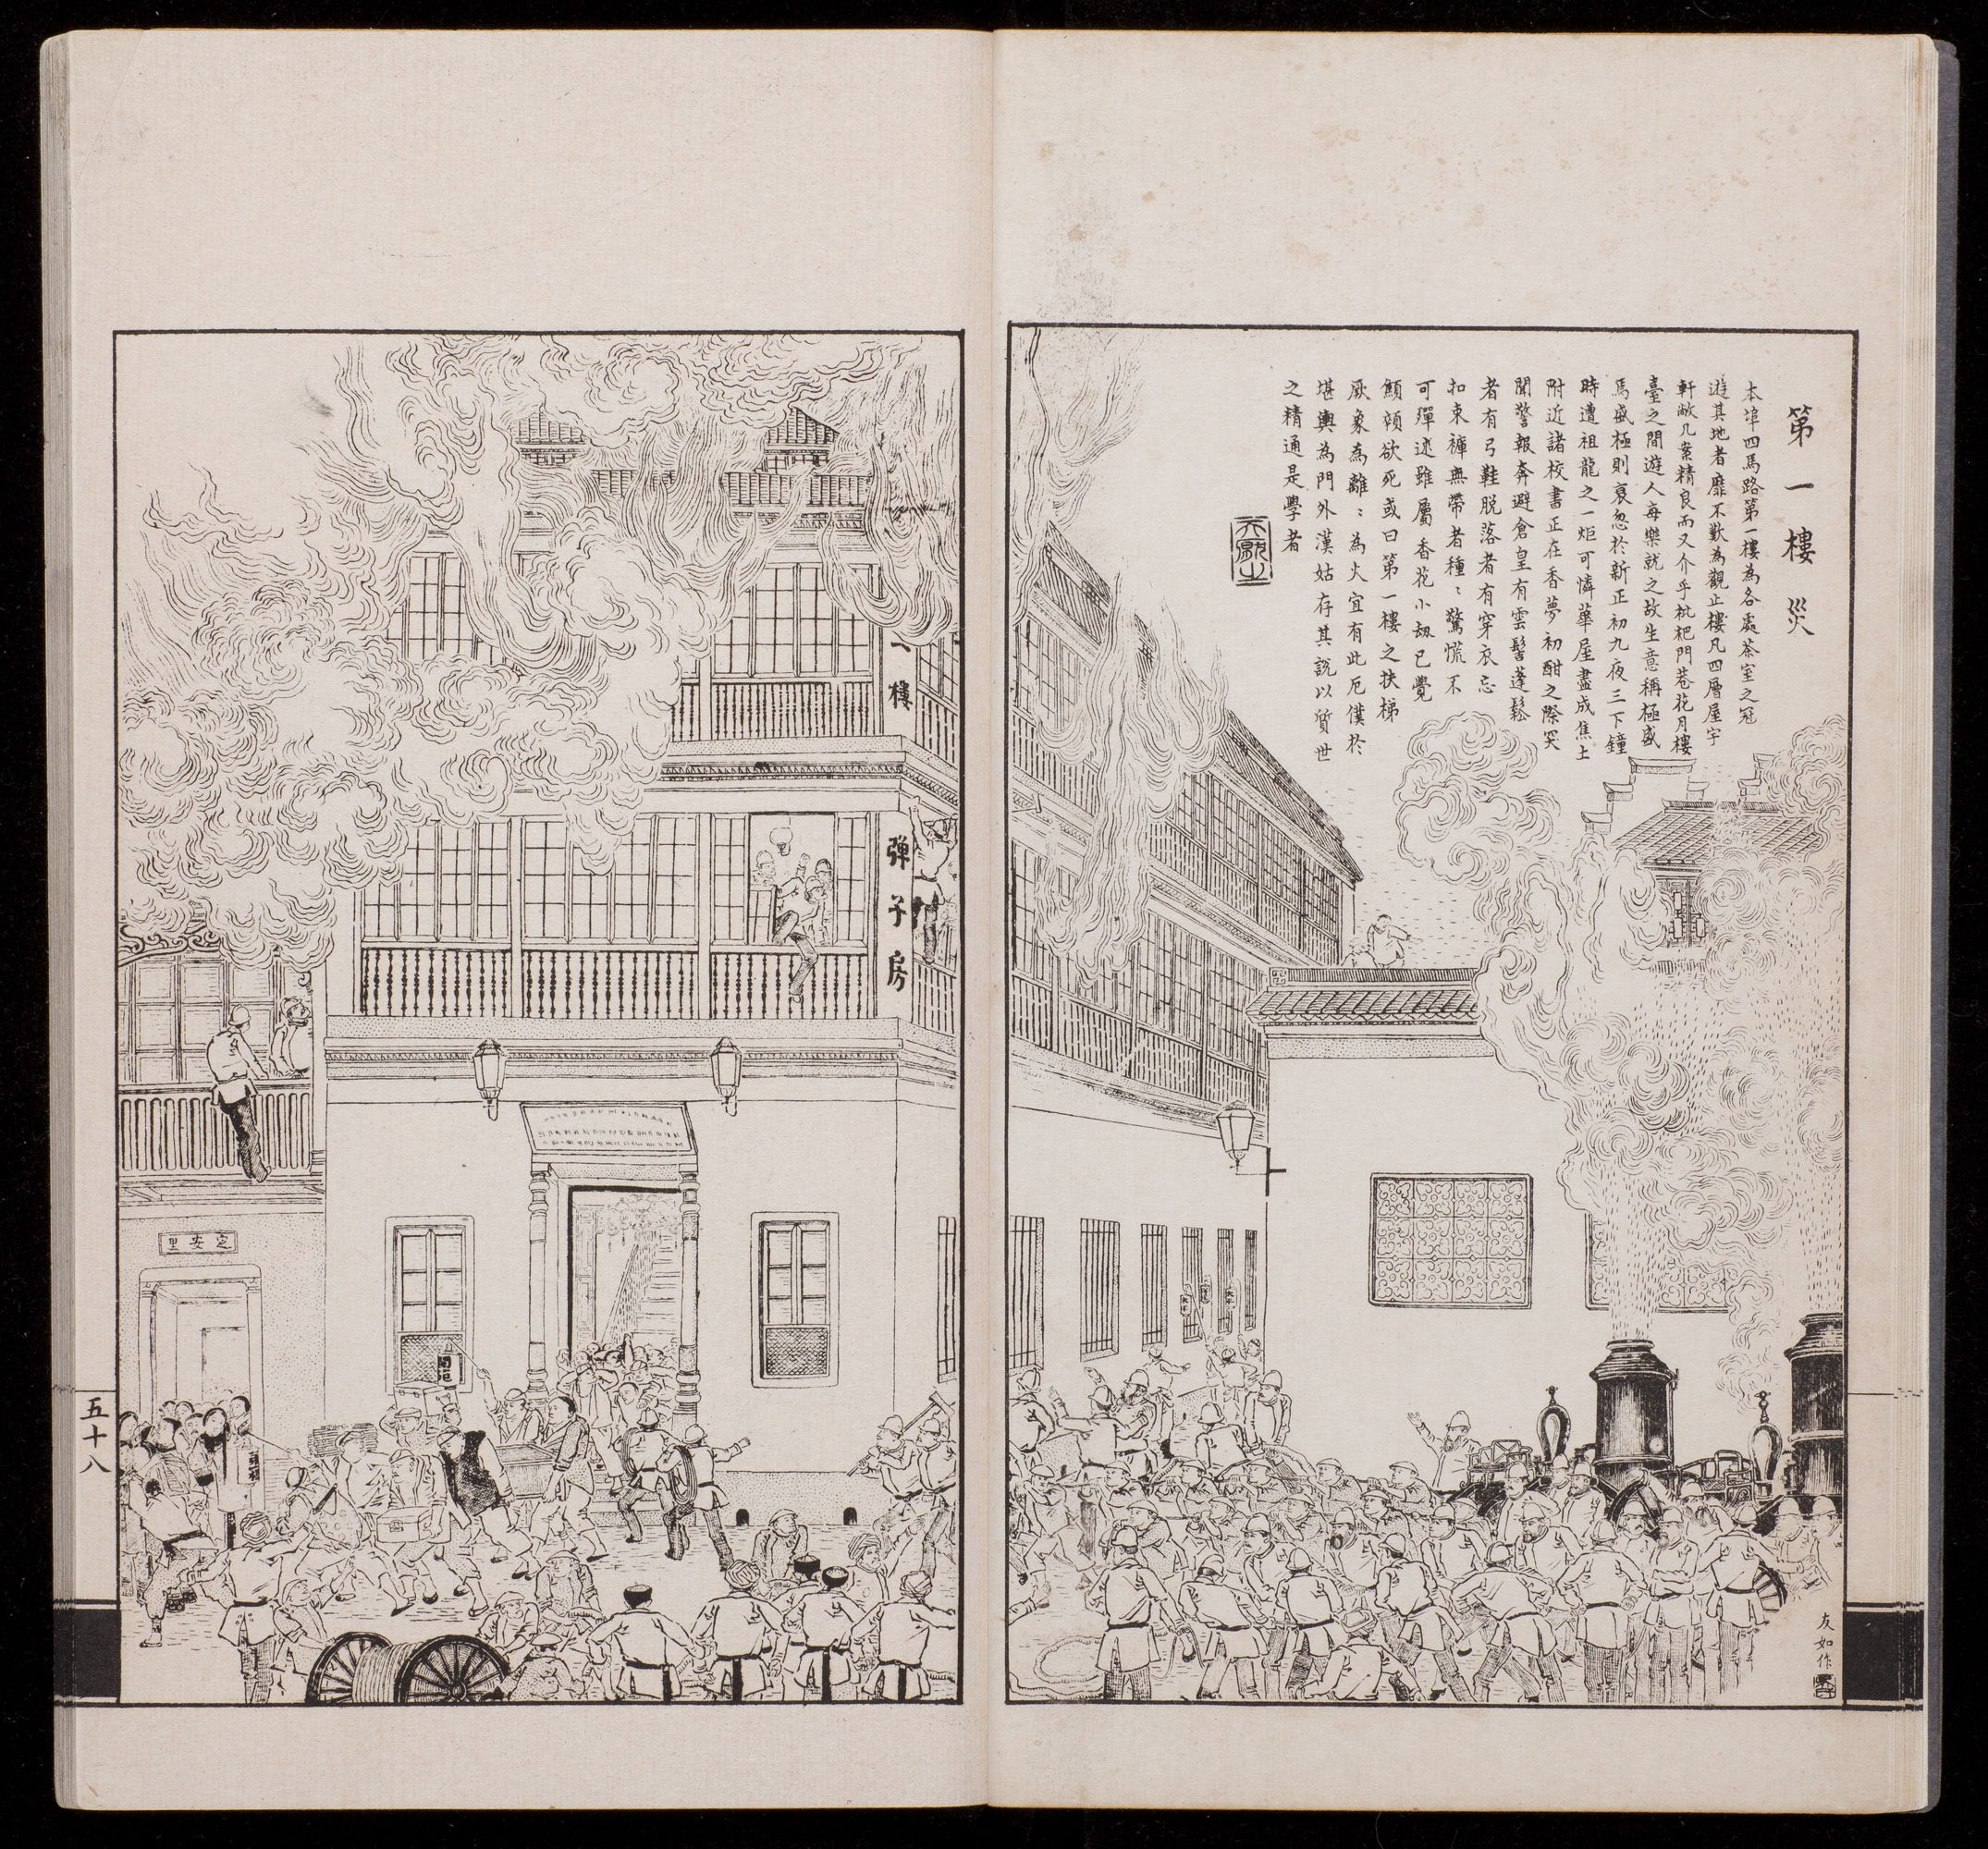 第一樓災
本埠四馬路第一樓為各處茶室之冠
遊其地者靡不歎為觀止樓凡四層屋宇
軒敞几案精良而又介乎枇杷門巷花月樓
臺之間遊人每樂就之故生意稱極盛
焉盛極則衰忽於新正初九夜三下鐘
時遭祖龍之一炬可憐華屋盡成焦土
附近諸校書正在香夢初酣之際突
聞警報奔避倉皇有雲髻蓬鬆
者有弓鞋脫落者有穿衣忘
扣束褲無帶者種〻驚慌不
可殫述雖屬香花小劫已覺
顛頓欲死或曰第一樓之扶梯
厥象為離〻為火宜有此厄僕於
堪輿為門外漢姑存其說以質世
之精通是學者
友如作
一樓
彈子房
定安里
五十八